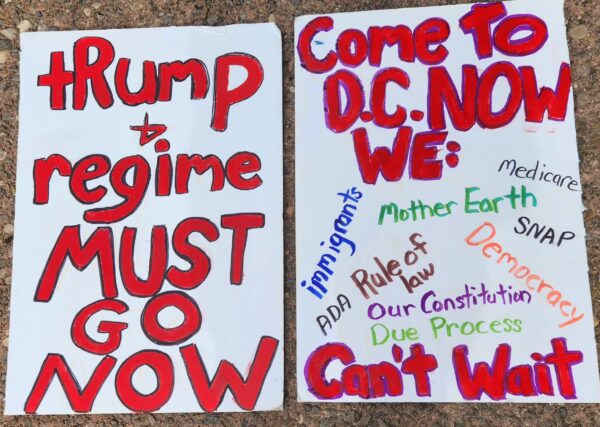 tRump
&
regime
MUST
GO
NOW
Come To
D.C. NOW
WE:
Medicare
immigrants
Mother Earth
SNAP
Democracy
ADA
Rule of
law
Our Constitution
Due Process
Can't Wait